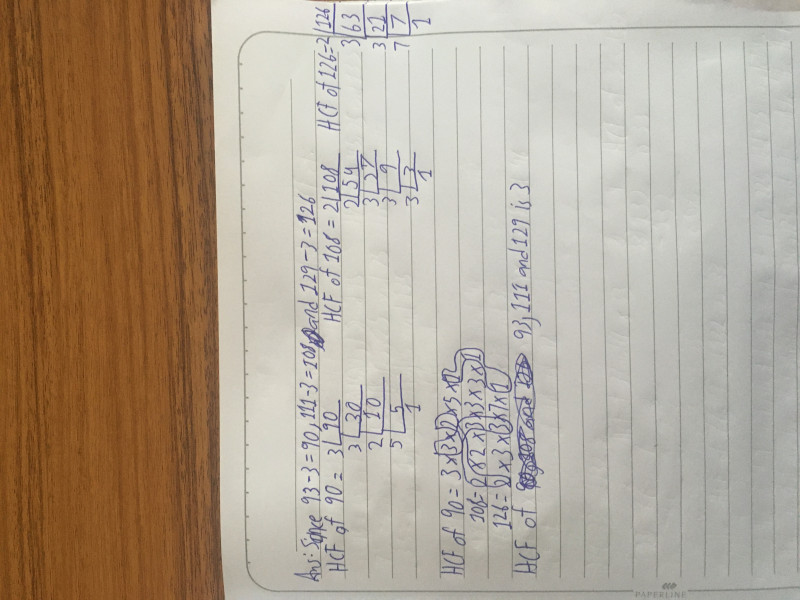 Ans: Since 93-3=90, 111-3=108, and 129-3=126
HCF of 90 = 3|90 HCF of 108 = 2|108 HCF of 126=2|126
3|30 2|54 3|63
2|10 3|27 3|21
5|5 3|9 7|7
1 3|3 1
1
HCF of 90 = 3×3×2×5×1
108=2×2×3×3×3×1
126=2×3×3×7×1
HCF of 93, 111 and 129 is 3
PAPERLINE